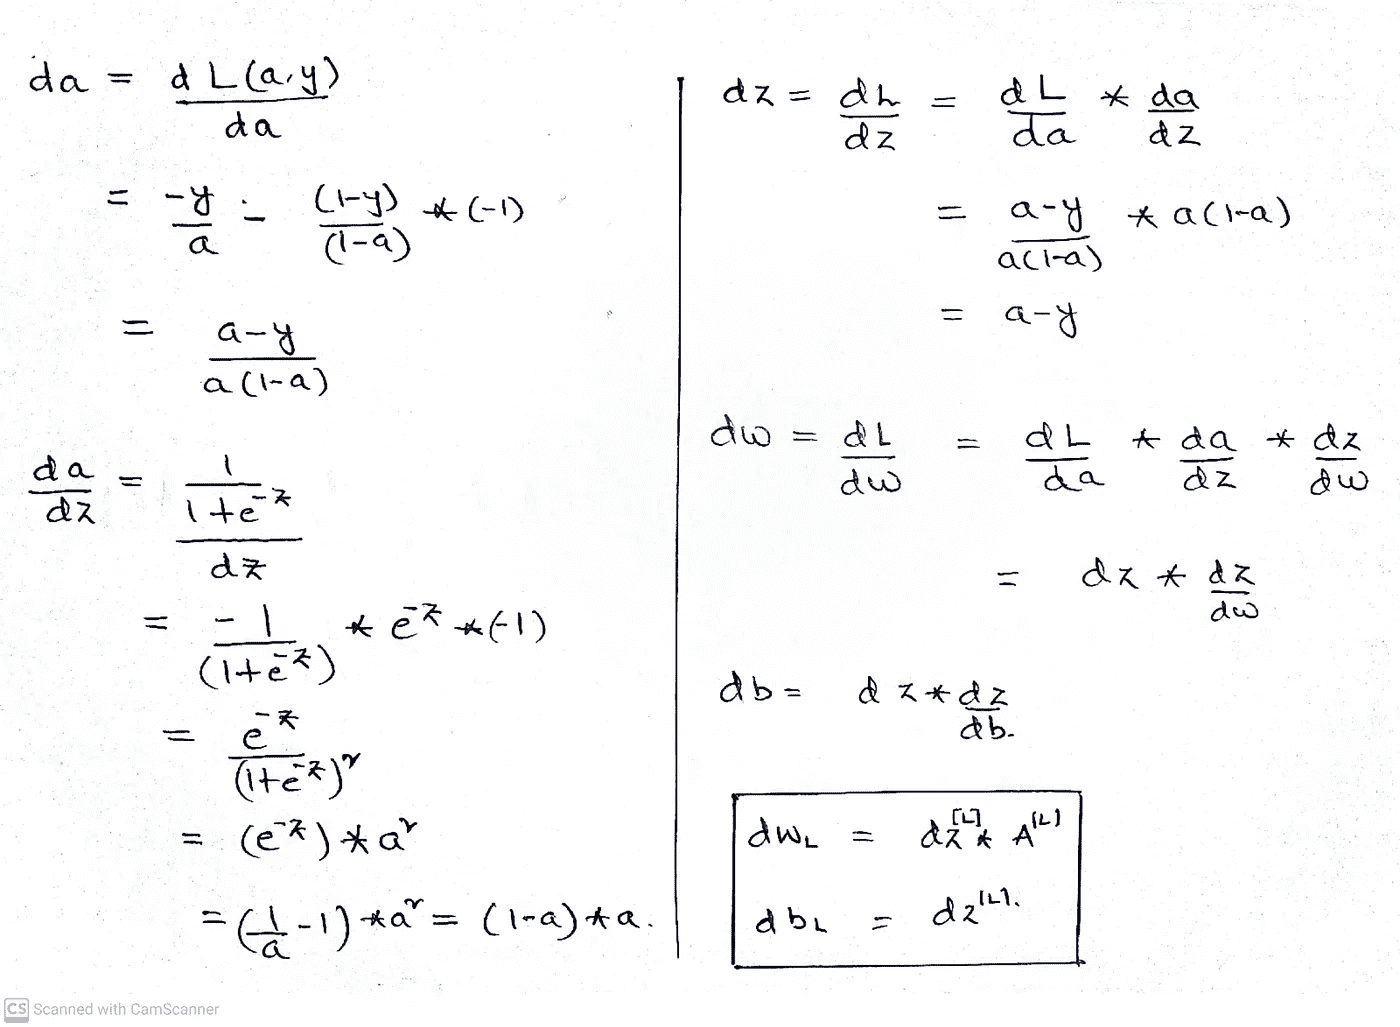 da = dL(a,y)/da
= -y/a - (1-y)/(1-a) * (-1)
= a-y/a(1-a)
da/dz = 1/1+e^-z/dz
= -1/(1+e^-z) * e^-z *(-1)
= e^-z/(1+e^-z)^2
= (e^-z) * a^2
= (1/a -1) * a^2 = (1-a) * a.
dz = dL/dz = dL/da * da/dz
= a-y/a(1-a) * a(1-a)
= a-y
dw = dL/dw = dL/da * da/dz * dz/dw
= dz * dz/dw
db = dz * dz/db.
dw_L = dz^[L] * A^[L]
db_L = dz^[L].
CS Scanned with CamScanner